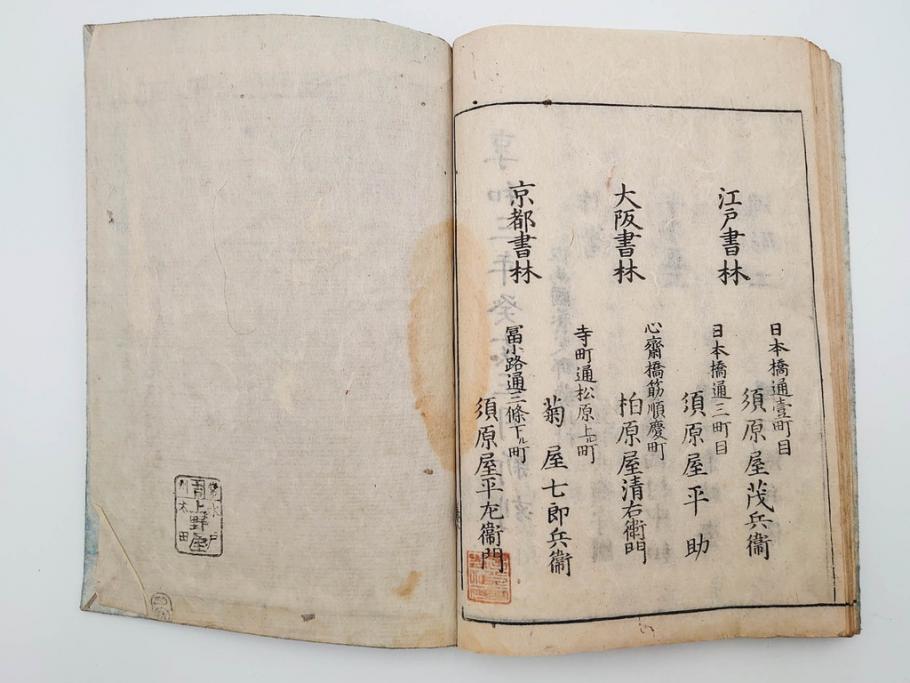 江戸書林
日本橋通壹町目
須原屋茂兵衞
日本橋通三町目
須原屋平助
大阪書林
心齋橋筋順慶町
柏原屋清右衞門
京都書林
寺町通松原上ル町
菊屋七郎兵衞
冨小路通三條下ル町
須原屋平左衞門
上野屋